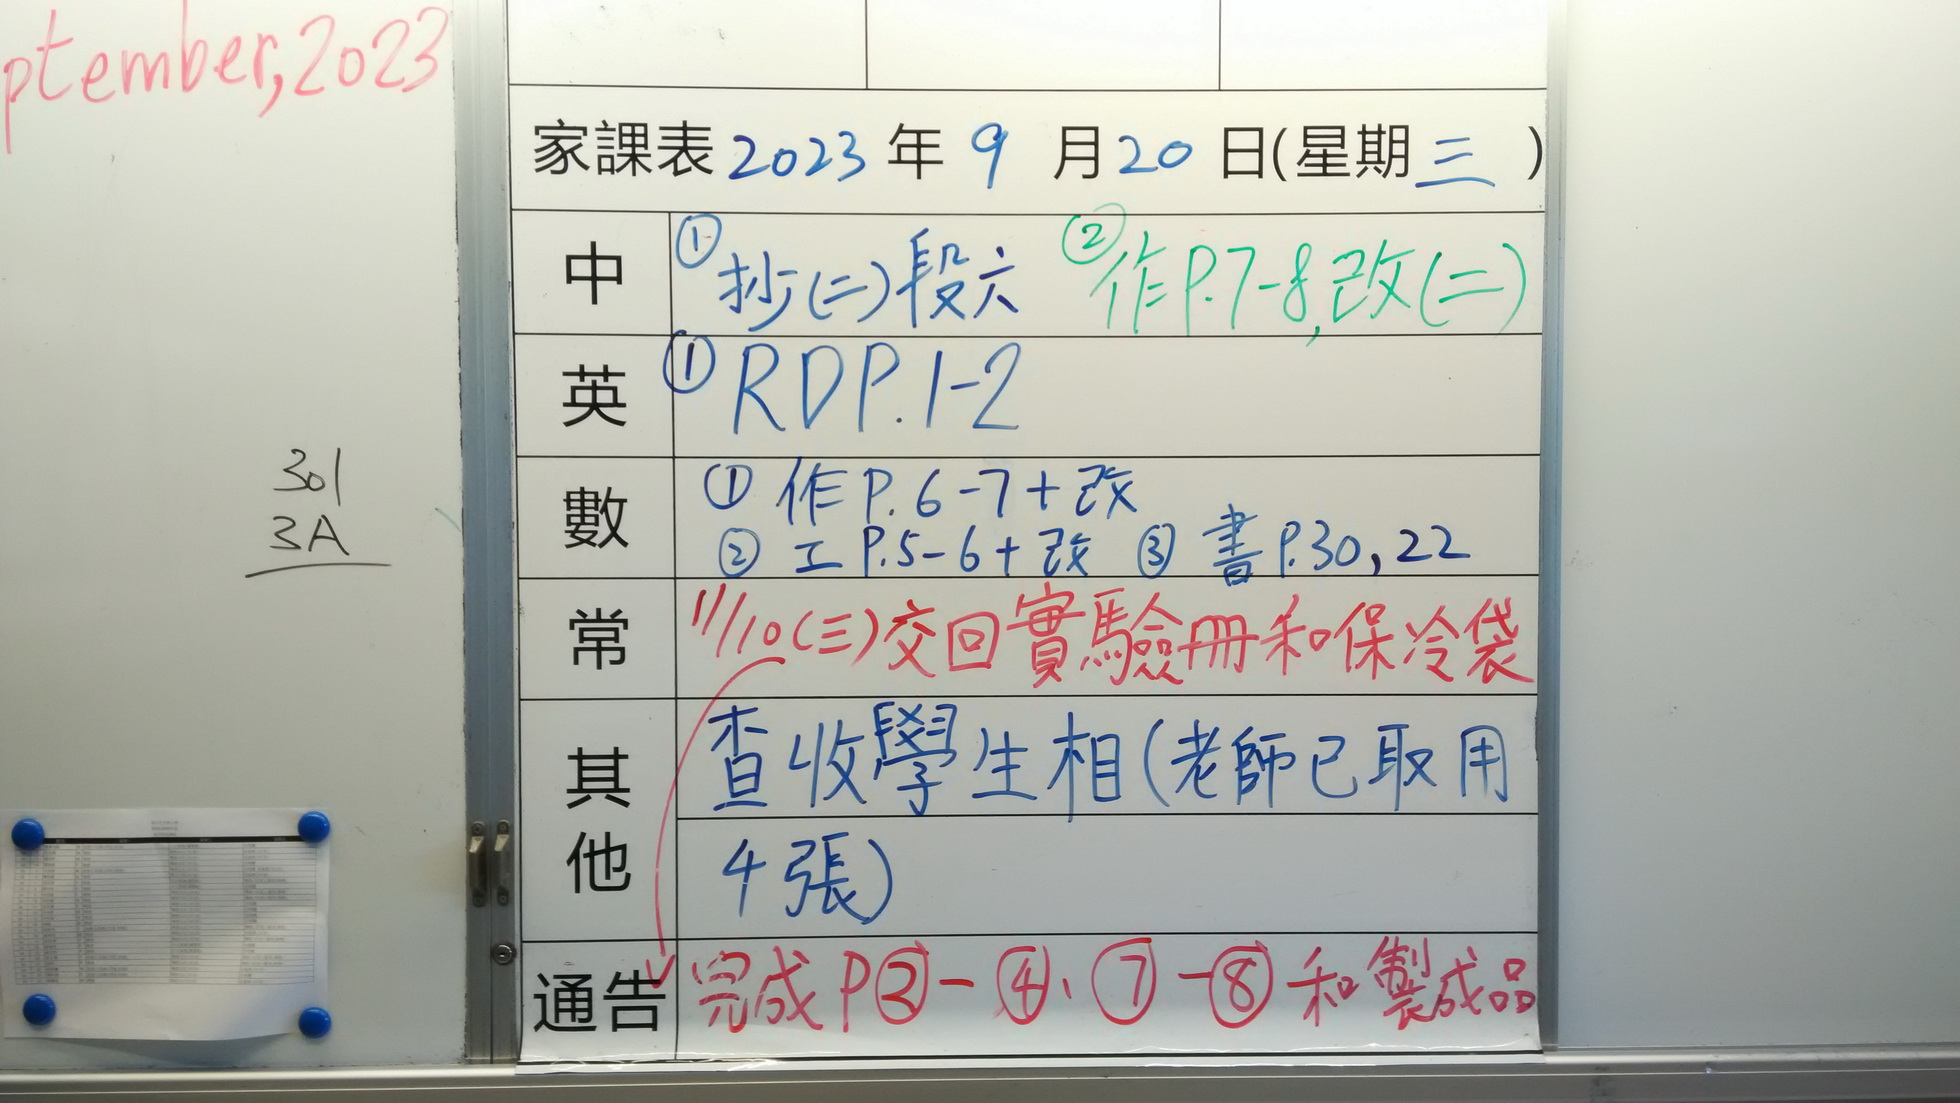 ptember, 2023
301
3A
家課表 2023 年 9 月 20 日(星期 三 )
中 ① 抄(二)段六 ② 作P.7-8,改(二)
英 ① RD P.1-2
數 ① 作 P.6-7+改
② 工 P.5-6+改 ③ 書 P.30,22
常 11/10(三)交回實驗冊和保冷袋
其他 查收學生相(老師已取用
4張)
通告 完成 P②-④、⑦-⑧和製成品